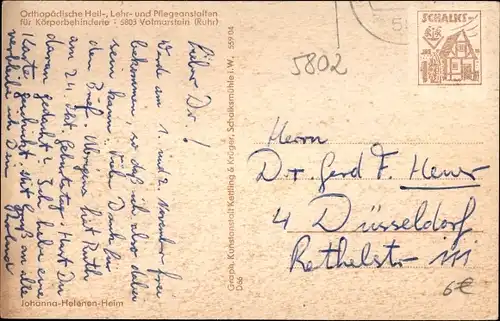 Orthopädische Heil-, Lehr- und Pflegeanstalten
für Körperbehinderte · 5803 Volmarstein (Ruhr)
Lieber Dr.!
Werde am 1. und 2. November frei
bekommen, so daß ich also dabei
sein kann. Viele Dank für
den Brief. Übrigens hat Ruth
am 24. Okt. Geburtstag! Hast Du
daran gedacht? Ich habe eine
Karte geschickt. Mit Gruß an alle
verbleibe ich Dein
Johanna-Helenen-Heim
Graph. Kunstanstalt Kettling & Krüger, Schalksmühle i. W. 559 04
D66
5802
SCHALKS
Herrn
Dr. Gerd F. Heuer
4 Düsseldorf
Rethelstr 111
6€